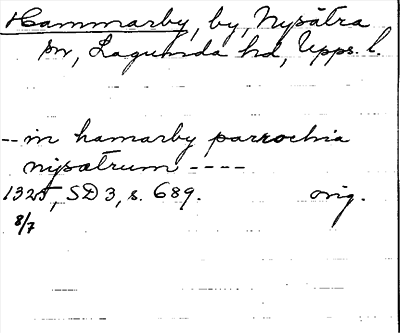 Hammarby, by, Nysätra
sn, Lagunda hd, Upps. l.
-- in hamarby parrochia
nysætrum ----
1325, SD 3, s. 689. orig.
8/7